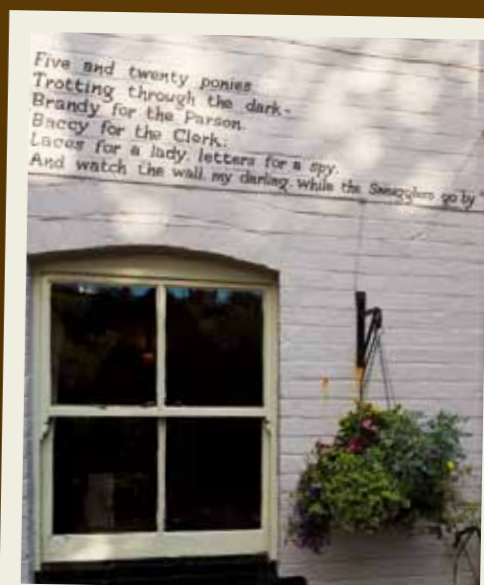 Five and twenty ponies
Trotting through the dark -
Brandy for the Parson.
Baccy for the Clerk:
Laces for a lady, letters for a spy.
And watch the wall, my darling, while the Smugglers go by"